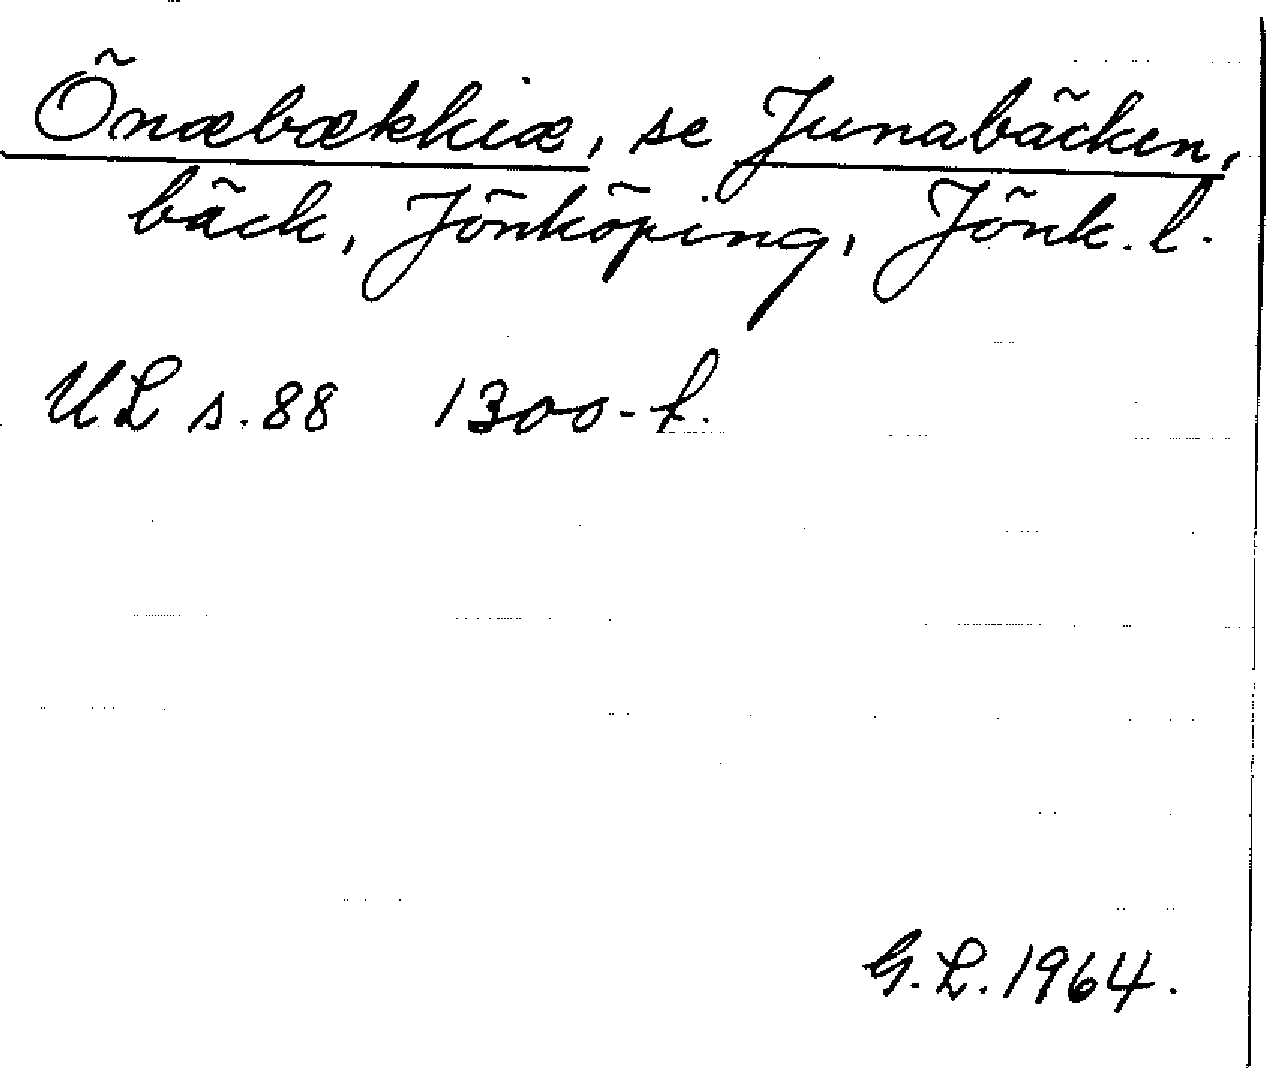 Önæbækkiæ, se Junabäcken,
bäck, Jönköping, Jönk. l.
UL s. 88 1300-t.
G.L. 1964.